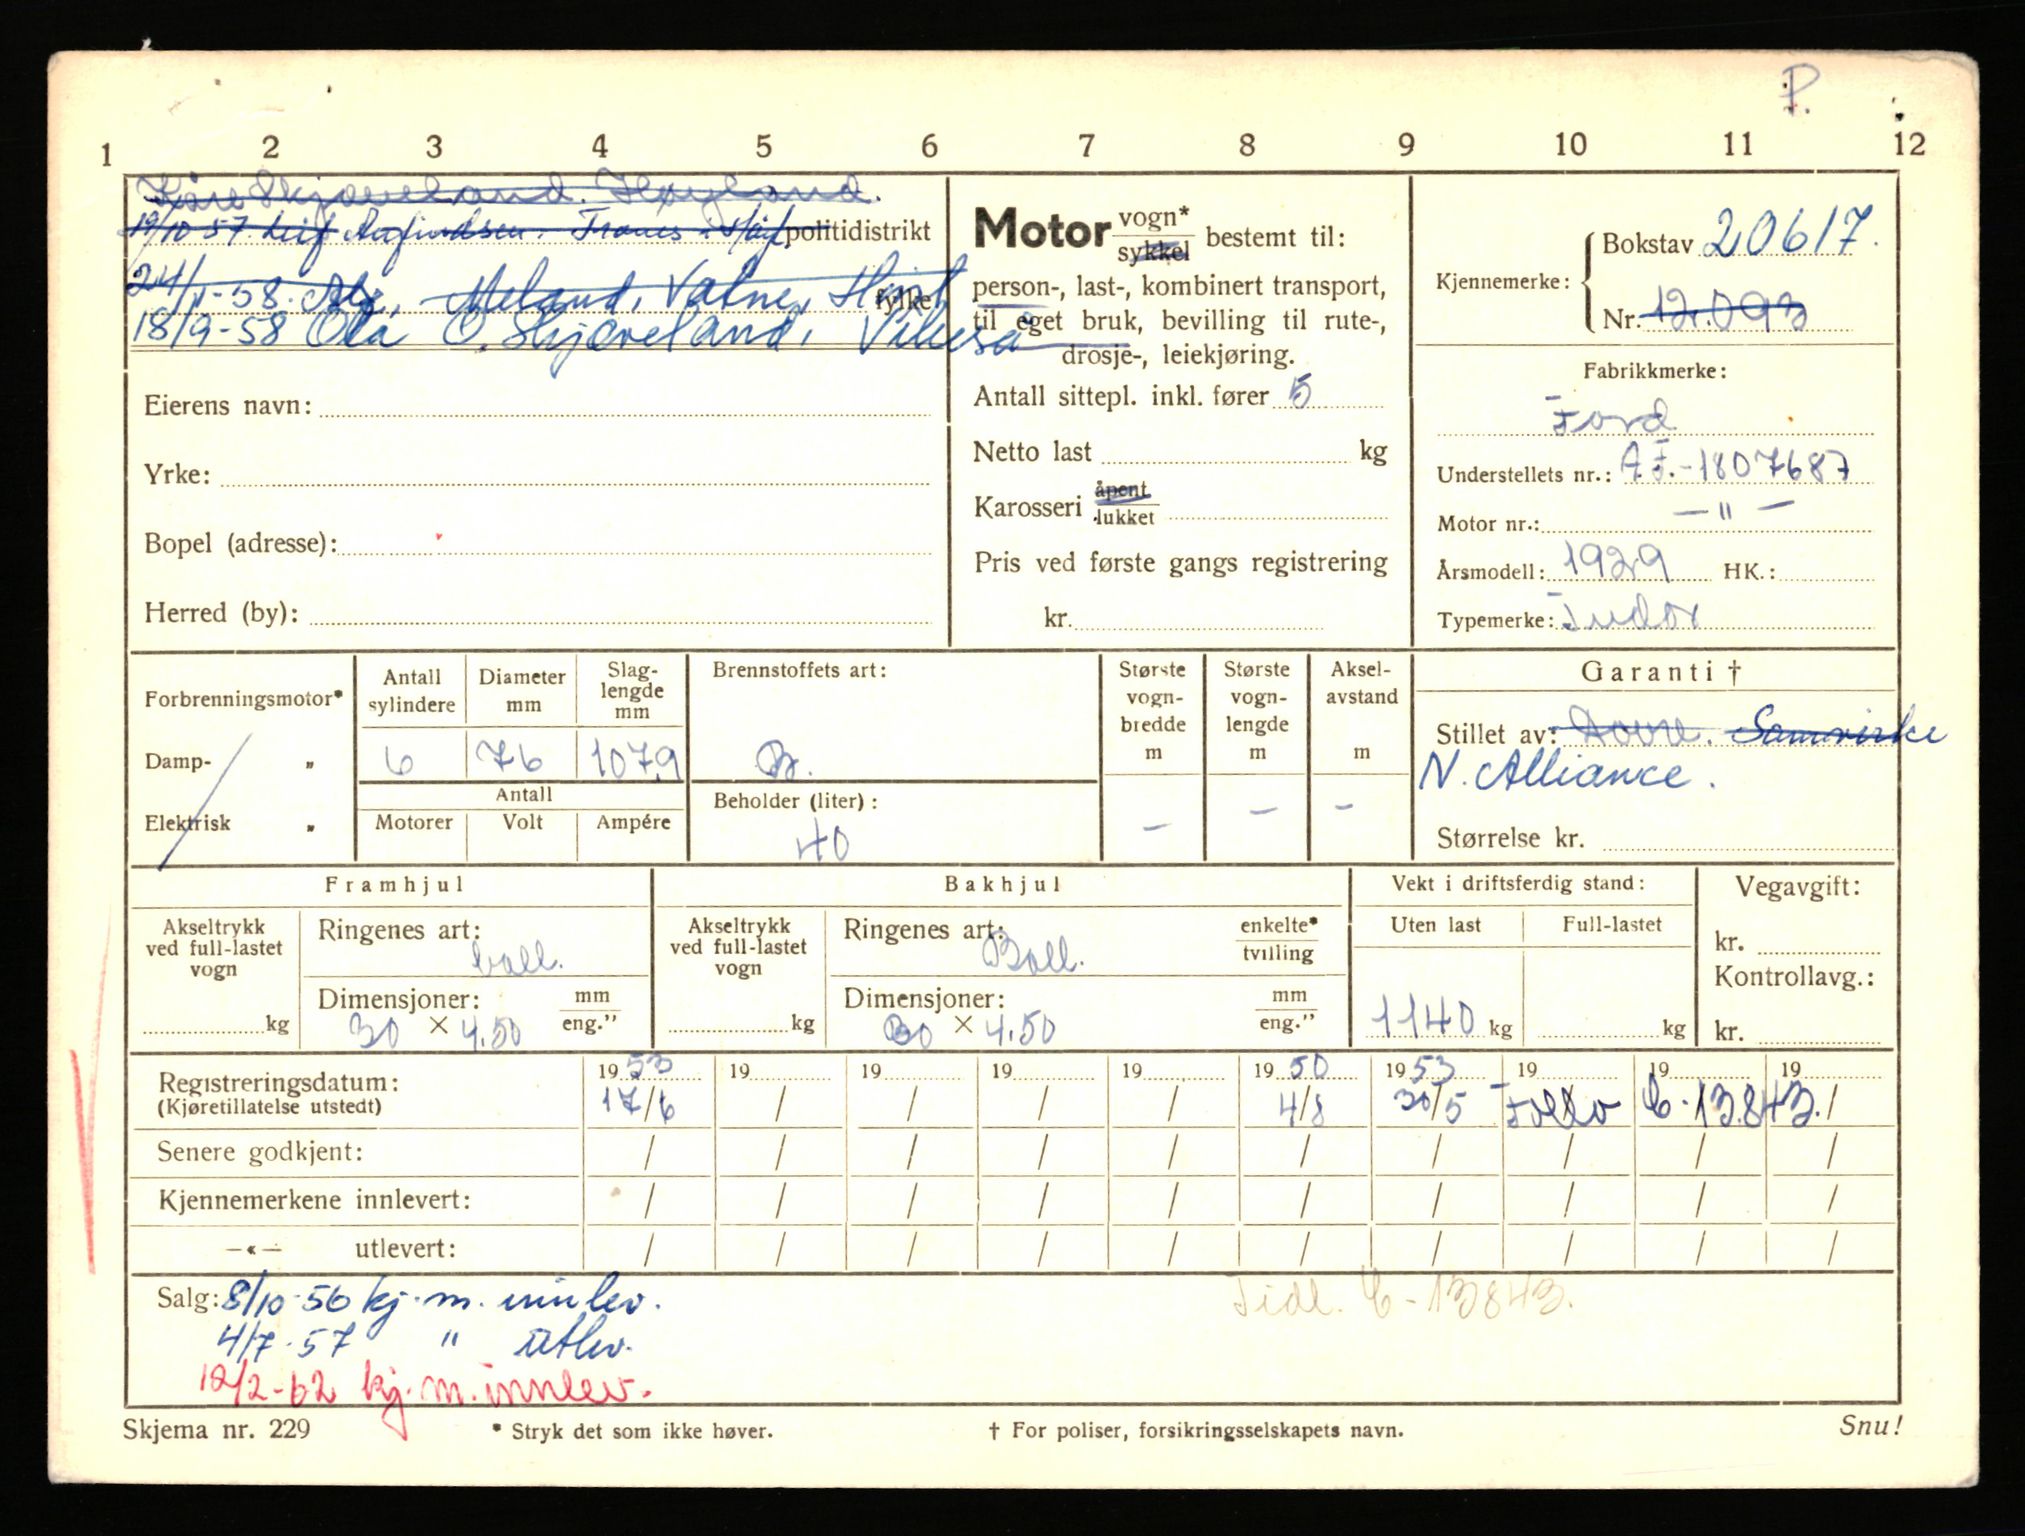 P.
1 2 3 4 5 6 7 8 9 10 11 12
Kåre Skjæveland. Høyland.
19/10 57 Leif politidistrikt
24/1-58. Meland, Vatne, fylke
18/9-58 Ola O. Skjæveland, Vikeså
Eierens navn:
Yrke:
Bopel (adresse):
Herred (by):
Motor vogn* sykkel bestemt til:
person-, last-, kombinert transport,
til eget bruk, bevilling til rute-,
drosje-, leiekjøring.
Antall sittepl. inkl. fører 5
Netto last kg
Karosseri åpent lukket
Pris ved første gangs registrering
kr.
Kjennemerke: Bokstav 20617.
Nr. 12.093
Fabrikkmerke:
Ford
Understellets nr.: AF.-1807687
Motor nr.: — " —
Årsmodell: 1929 HK.:
Typemerke: Tudor
Forbrenningsmotor*
Damp- „
Elektrisk „
Antall sylindere
6
Diameter mm
76
Slag-lengde mm
107,9
Antall
Motorer Volt Ampére
Brennstoffets art:
B.
Beholder (liter):
40
Største vogn-bredde m
—
Største vogn-lengde m
—
Aksel-avstand m
—
Garanti †
Stillet av: Samvirke
N. Alliance.
Størrelse kr.
Framhjul
Akseltrykk ved full-lastet vogn
kg
Ringenes art:
ball.
Dimensjoner: mm eng."
30 × 4.50
Bakhjul
Akseltrykk ved full-lastet vogn
kg
Ringenes art: enkelte* tvilling
Ball.
Dimensjoner: mm eng."
30 × 4.50
Vekt i driftsferdig stand:
Uten last Full-lastet
1140 kg kg
Vegavgift:
kr.
Kontrollavg.:
kr.
Registreringsdatum: 19 53 19 19 19 19 19 50 19 53 19 19 19
(Kjøretillatelse utstedt) 17/6 / / / / 4/8 30/5 Follo C-13843. /
Senere godkjent: / / / / / / / / / /
Kjennemerkene innlevert: / / / / / / / / / /
—«— utlevert: / / / / / / / / / /
Salg: 8/10-56 kj.m. innlev. Tidl. C-13843.
4/7-57 " utlev.
12/2-62 kj.m. innlev.
Skjema nr. 229 * Stryk det som ikke høver. † For poliser, forsikringsselskapets navn. Snu!